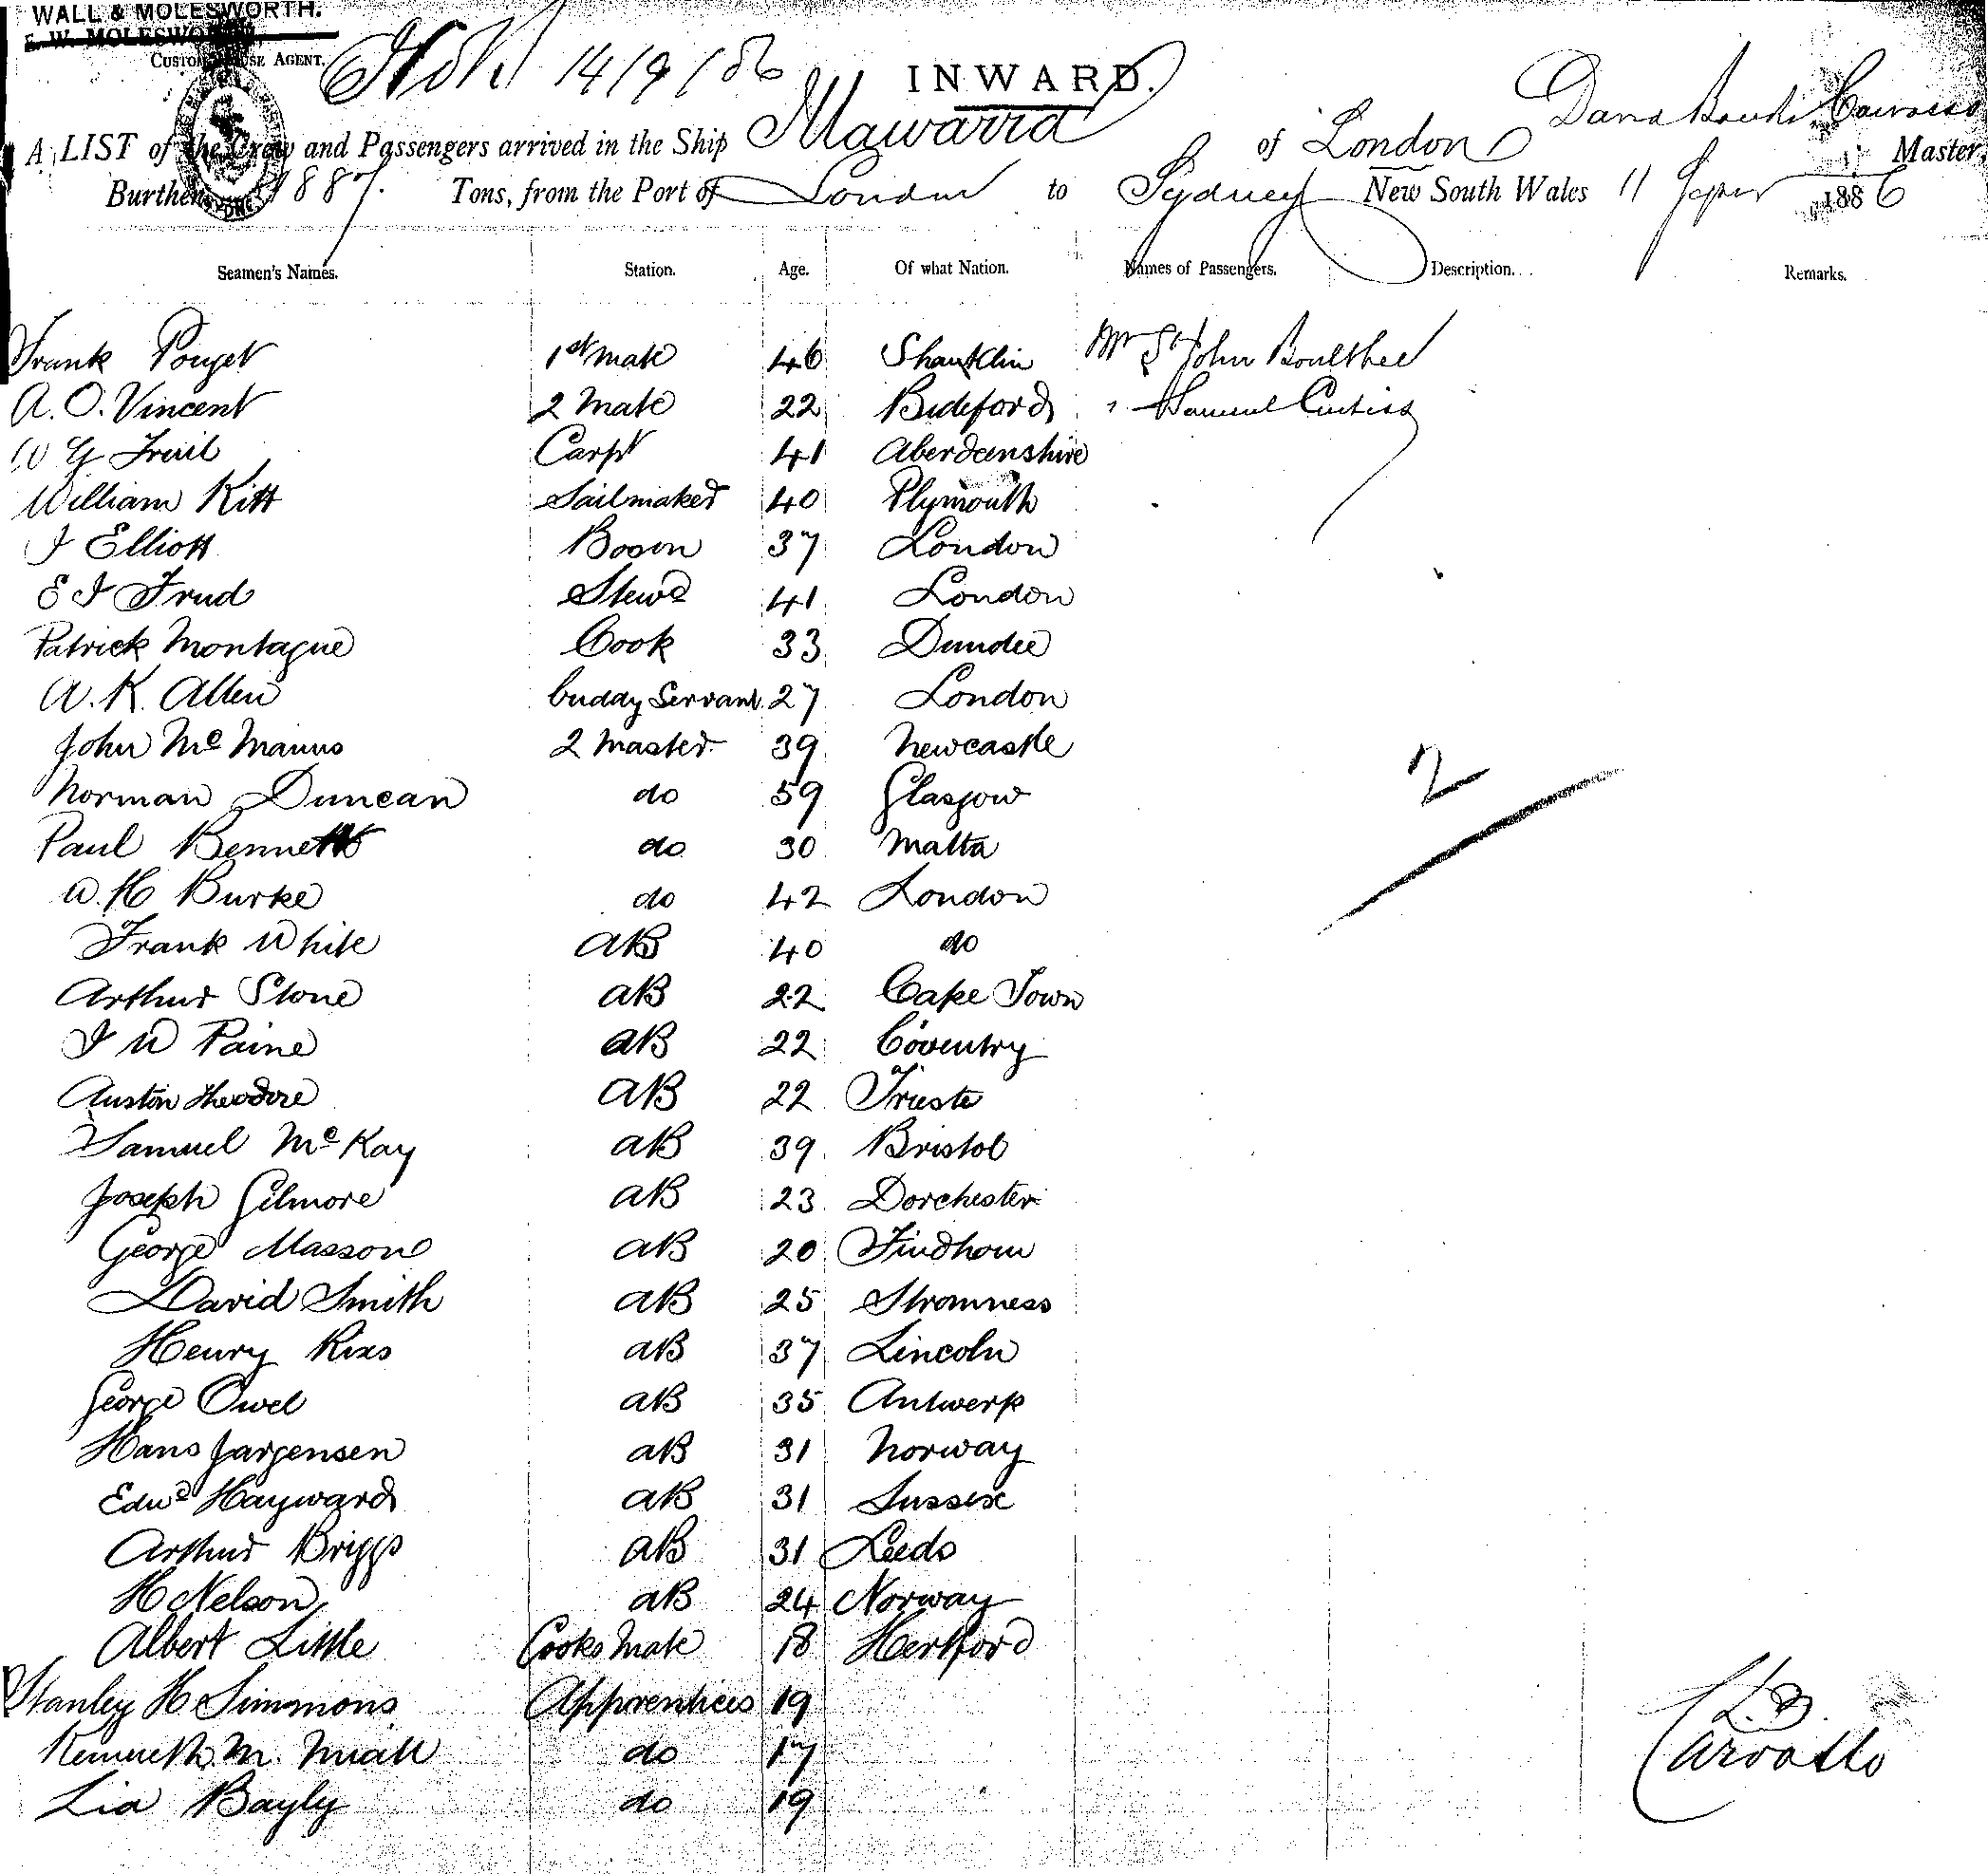 WALL & MOLESWORTH.
E. W. MOLESWORTH
CUSTOM HOUSE AGENT.
14/9/86
INWARD.
A LIST of the Crew and Passengers arrived in the Ship Hawarra of London Master,
Burthen 1887 Tons, from the Port of London to Sydney New South Wales 11 1886
Seamen's Names. Station. Age. Of what Nation. Names of Passengers. Description. Remarks.
Frank Pouget 1st Mate 46 Shanklin Mr St John Boultbee
A. O. Vincent 2 Mate 22 Bideford " Samuel Curtiss
W G Frail Carpr 41 Aberdeenshire
William Kitt Sailmaker 40 Plymouth
J Elliott Bosen 37 London
E J Frud Stewd 41 London
Patrick Montague Cook 33 Dundee
A. K. Allen Cuddy Servant 27 London
John Mc Manus 2 Master 39 Newcastle
Norman Duncan do 59 Glasgow
Paul Bennett do 30 Malta
W. H Burke do 42 London
2
Frank White AB 40 do
Arthur Stone AB 22 Cape Town
J W Paine AB 22 Coventry
Auston Theodore AB 22 Trieste
Samuel Mc Kay AB 39 Bristol
Joseph Gilmore AB 23 Dorchester
George Masson AB 20 Findhorn
David Smith AB 25 Stromness
Henry Rixs AB 37 Lincoln
George Owel AB 35 Antwerp
Hans Jargensen AB 31 Norway
Edwd Hayward AB 31 Sussex
Arthur Briggs AB 31 Leeds
H Nelson AB 24 Norway
Albert Little Cooks Mate 18 Hertford
Stanley H Simmons Apprentices 19
Kenneth M. Miall do 17
Lia Bayly do 19